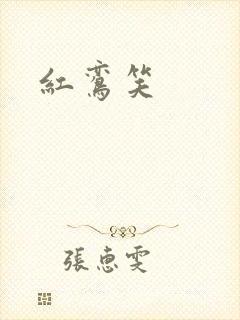 紅鸞笑
張惠雯